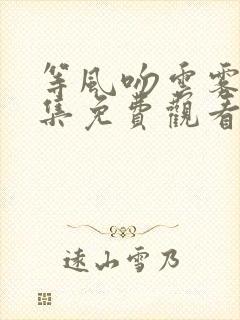 等風吻雲霧
集免費觀看
遠山雪乃